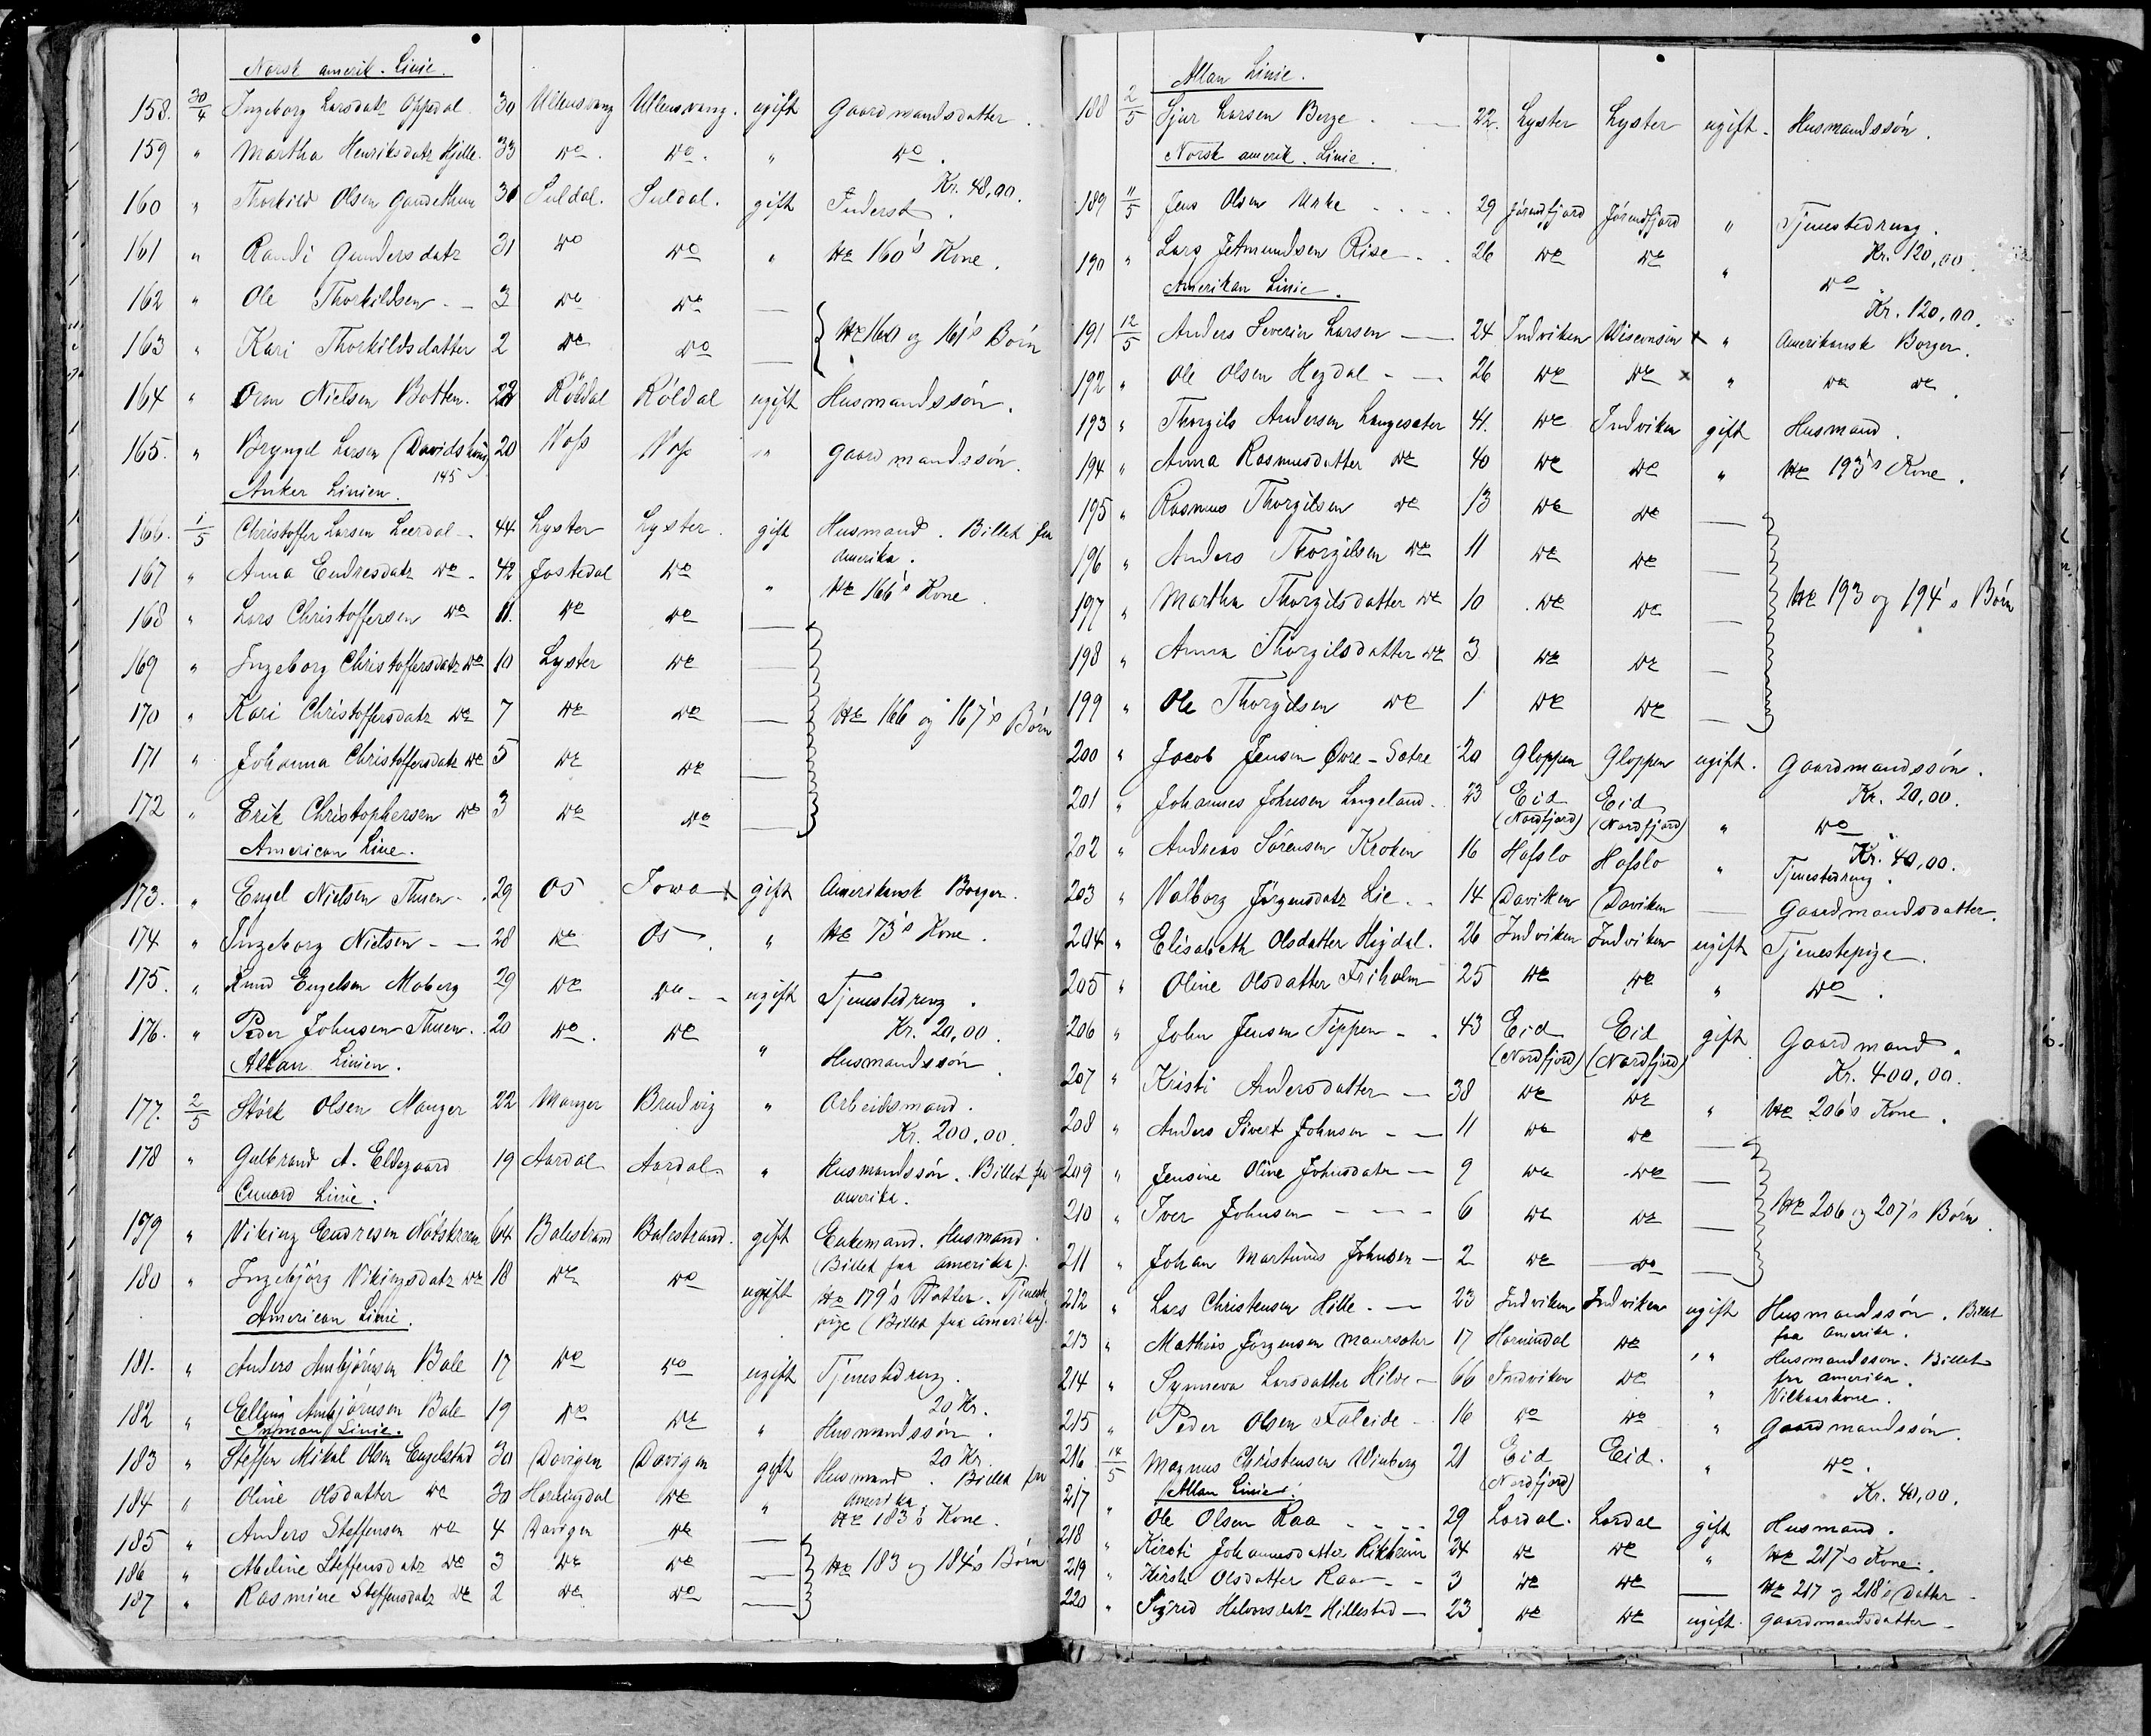 Norsk amerik. Linie.
158. 30/4 Ingeborg Larsdatr Oppedal 30 Ullensvang Ullensvang. ugift Gaardmandsdatter.
159 " Martha Henriksdatr Hjelle. 33 do. do. " do.
Kr. 48,00.
160 " Thorkild Olsen 30 Suldal. Suldal. gift Inderst.
161 " Randi Gundersdatr 31 do do " No 160's Kone.
162 " Ole Thorkildsen - - 3 do do —
163 " Kari Thorkildsdatter 2 do do — No 160 og 161's Børn
164 " Orm Nielsen Botten. 22 Röldal Röldal ugift Husmandssön.
165. " Bryngel Larsen (Davids 20 Voss Voss " gaardmandssön.
145
Anker Linien.
166. 1/5 Christoffer Larsen Leerdal -. 44 Lyster Lyster. gift Husmand. Billet fra
Amerika.
167 " Anna Endresdatr do -. 42 Jostedal do " No 166's Kone.
168 " Lars Christoffersen do 11. do do —
169 " Ingeborg Christoffersdatr do 10 Lyster do —
170 " Kari Christoffersdatr do 7 do do — No 166 og 167's Børn
171 " Johanna Christoffersdatr do 5 do do —
172 " Erik Christophersen do 3 do do —
American Line.
173. " Engel Nielsen Thuen -. 29 Os Iowa x gift Amerikansk Borger.
174 " Ingeborg Nielsen - — 28 do Os " No 73's Kone.
175. " Knud Engelsen Moberg 29 do do - - ugift Tjenestedreng.
Kr. 20,00.
176. " Peder Johnsen Thuen. 20 do. do " Husmandssön.
Allan Linien.
177. 2/5 Störk Olsen Manger 22 Manger Brudvig " Arbeidsmand.
Kr. 200,00.
178 " Gulbrand A. Eldegaard 19 Aardal Aardal " Husmandssön. Billet fra
Amerika.
Cunard Linie.
179 " Viking Endresen 64 Balestrand Balestrand. gift Enkemand. Husmand.
(Billet fra Amerika).
180 " Ingebjörg Vikingsdatr do 18 do do ugift No 179's Datter. Tjeneste
pige (Billet fra Amerika).
American Linie.
181. " Anders Ambjörnsen Bale 17 do do ugift Tjenestedreng.
20 Kr.
182 " Elling Ambjörnsen Bale 19 do do " Husmandssön.
20 Kr.
Inman Linie.
183 " Steffen Mikal Olsen Engelstad 30 Davigen Davigen gift Husmand. Billet fra
Amerika.
184 " Oline Olsdatter do 30 Horningdal do " No 183's Kone.
185 " Anders Steffensen do 4 Davigen do —
186 " Abeline Steffensdatr do 3 do do — No 183 og 184's Børn
187 " Rasmine Steffensdatr do 2 do do —
Allan Linie.
188 2/5 Sjur Larsen Berge. — 22. Lyster Lyster ugift. Husmandssön.
Norsk amerik. Linie.
189 11/5 Jens Olsen Urke - . . . 29 Jörendfjord Jörendfjord " Tjenestedreng.
Kr. 120,00.
190 " Lars JetmundsenRise - . . 26 do do " do
Kr. 120,00.
Amerikan Linie.
191 12/5 Anders Severin Larsen — 24 Indviken Wisconsin x " Amerikansk Borger.
192 " Ole Olsen Hegdal - — 26 do do x " do do.
193 " Thorgils Andersen Langesæter 41. do Indviken gift Husmand.
194 " Anna Rasmusdatter do 40 do do " No 193's Kone.
195 " Rasmus Thorgilsen do 13 do do —
196 " Anders Thorgilsen do 11 do do —
197 " Martha Thorgilsdatter do 10 do do — No 193 og 194's Børn
198 " Anna Thorgilsdatter do 3 do do —
199 " Ole Thorgilsen do 1 do do —
200 " Jacob Jensen Øvre-Sætre 20 Gloppen Gloppen ugift. Gaardmandssön.
Kr. 20,00.
201 " Johannes Johnsen Langeland. 23 Eid Eid " do
(Nordfjord) (Nordfjord)
Kr. 40,00.
202 " Andreas Sörensen Kroken 16 Hafslo Hafslo " Tjenestedreng.
203 " Valborg Jörgensdatr Lie. . 14 Daviken Daviken — Gaardmandsdatter.
204 " Elisabeth Olsdatter Hegdal. 26 Indviken Indviken ugift Tjenestepige.
205 " Oline Olsdatter Friholm 25 do do " do.
206 " John Jensen Tippen - . 43 Eid Eid gift Gaardmand.
(Nordfjord) (Nordfjord)
Kr. 400,00.
207 " Kristi Andersdatter - — 38 do do " No 206's Kone.
208 " Anders Sivert Johnsen - — 11 do do —
209 " Jensine Oline Johnsdatr — 9 do do —
210 " Iver Johnsen - - - - 6 do do — No 206 og 207's Børn.
211 " Johan Martinus Johnsen — 2 do do —
212 " Lars Christensen Hille. — 23 Indviken Indviken ugift Husmandssön. Billet
fra Amerika.
213 " Mathias Jörgensen Maurseter 17 Hornindal do " Husmandssøn. Billet
fra Amerika.
214 " Synneva Larsdatter Hilde — 66 Indviken do " Vilkaarkone.
215 " Peder Olsen Faleide - 16 do do " Gaardmandssön.
216 14/5 Magnus Christensen Winberg 21 Eid Eid. " do.
(Nordfjord)
Kr. 40,00.
Allan Linie.
217 " Ole Olsen Raa - . . . 29 Lardal. Lardal gift Husmand.
218 " Kirsti Johannesdatter Rikheim 24 do do " No 217's Kone.
219 " Kirsti Olsdatter Raa - - 3 do do — No 217 og 218's Datter
220 " Sigrid Halvorsdatr Hillestad — 23 do do ugift. gaardmandsdatter